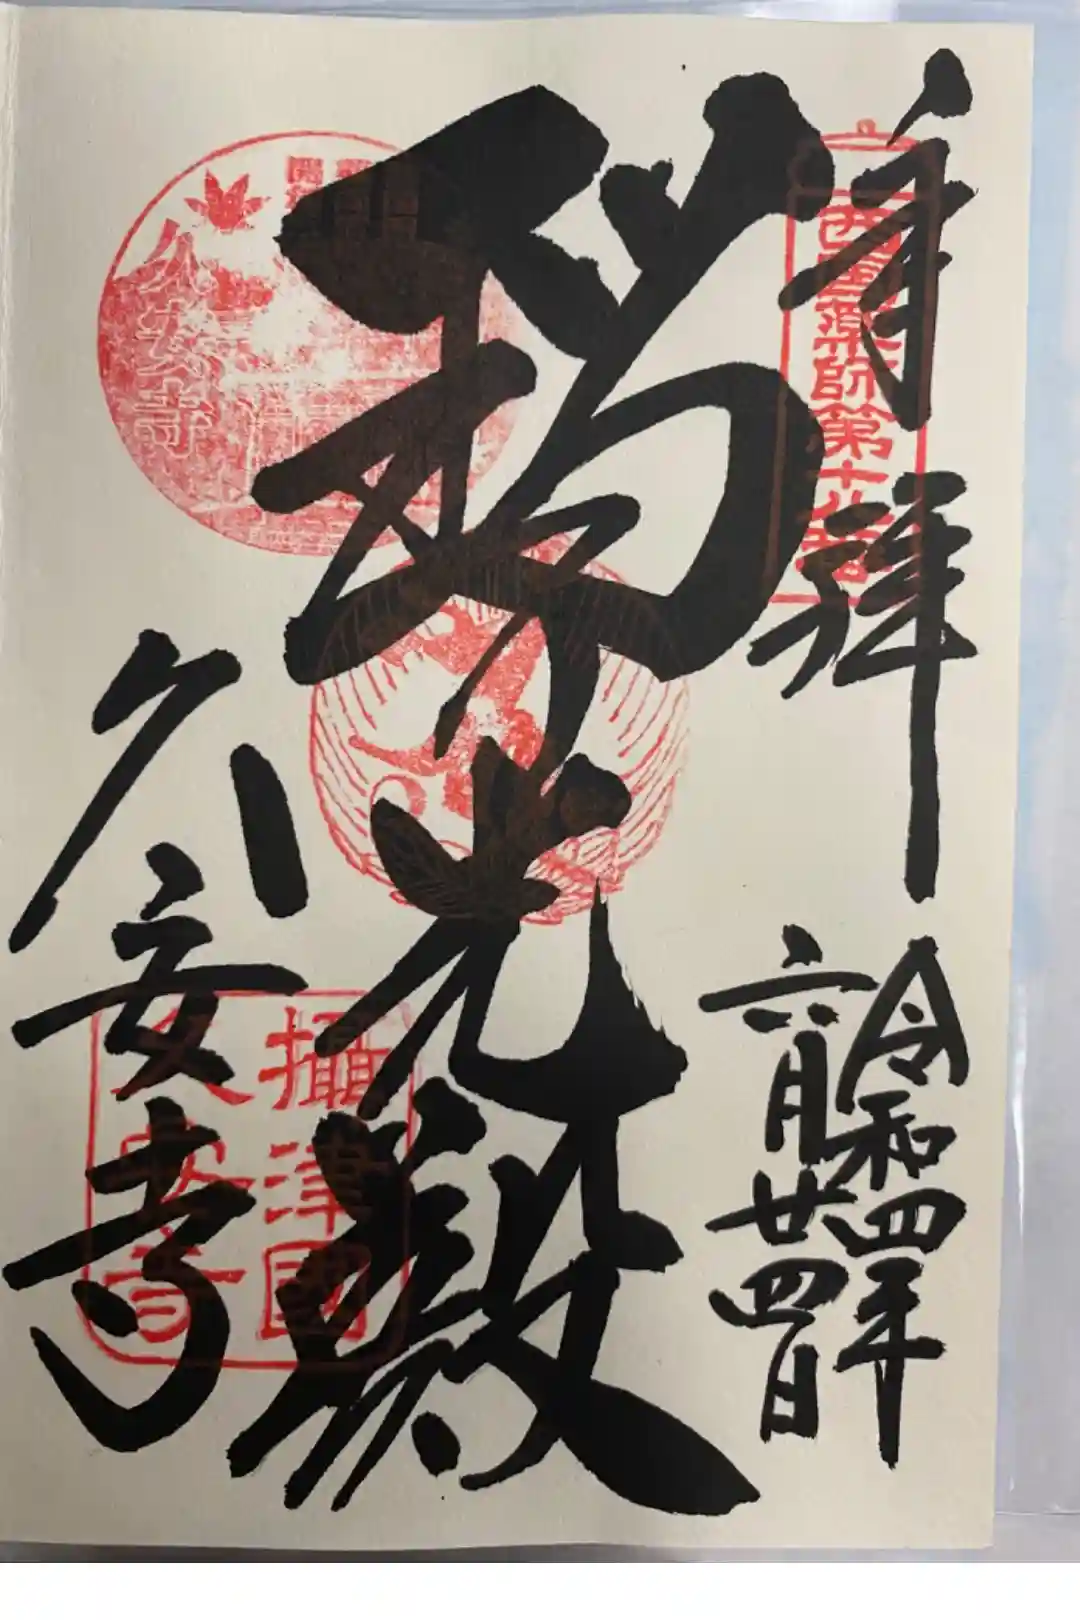 奉拝
令和四年
六月廿四日
西国薬師第十八番
瑠光殿
久安寺
久安寺
攝津國
久安寺